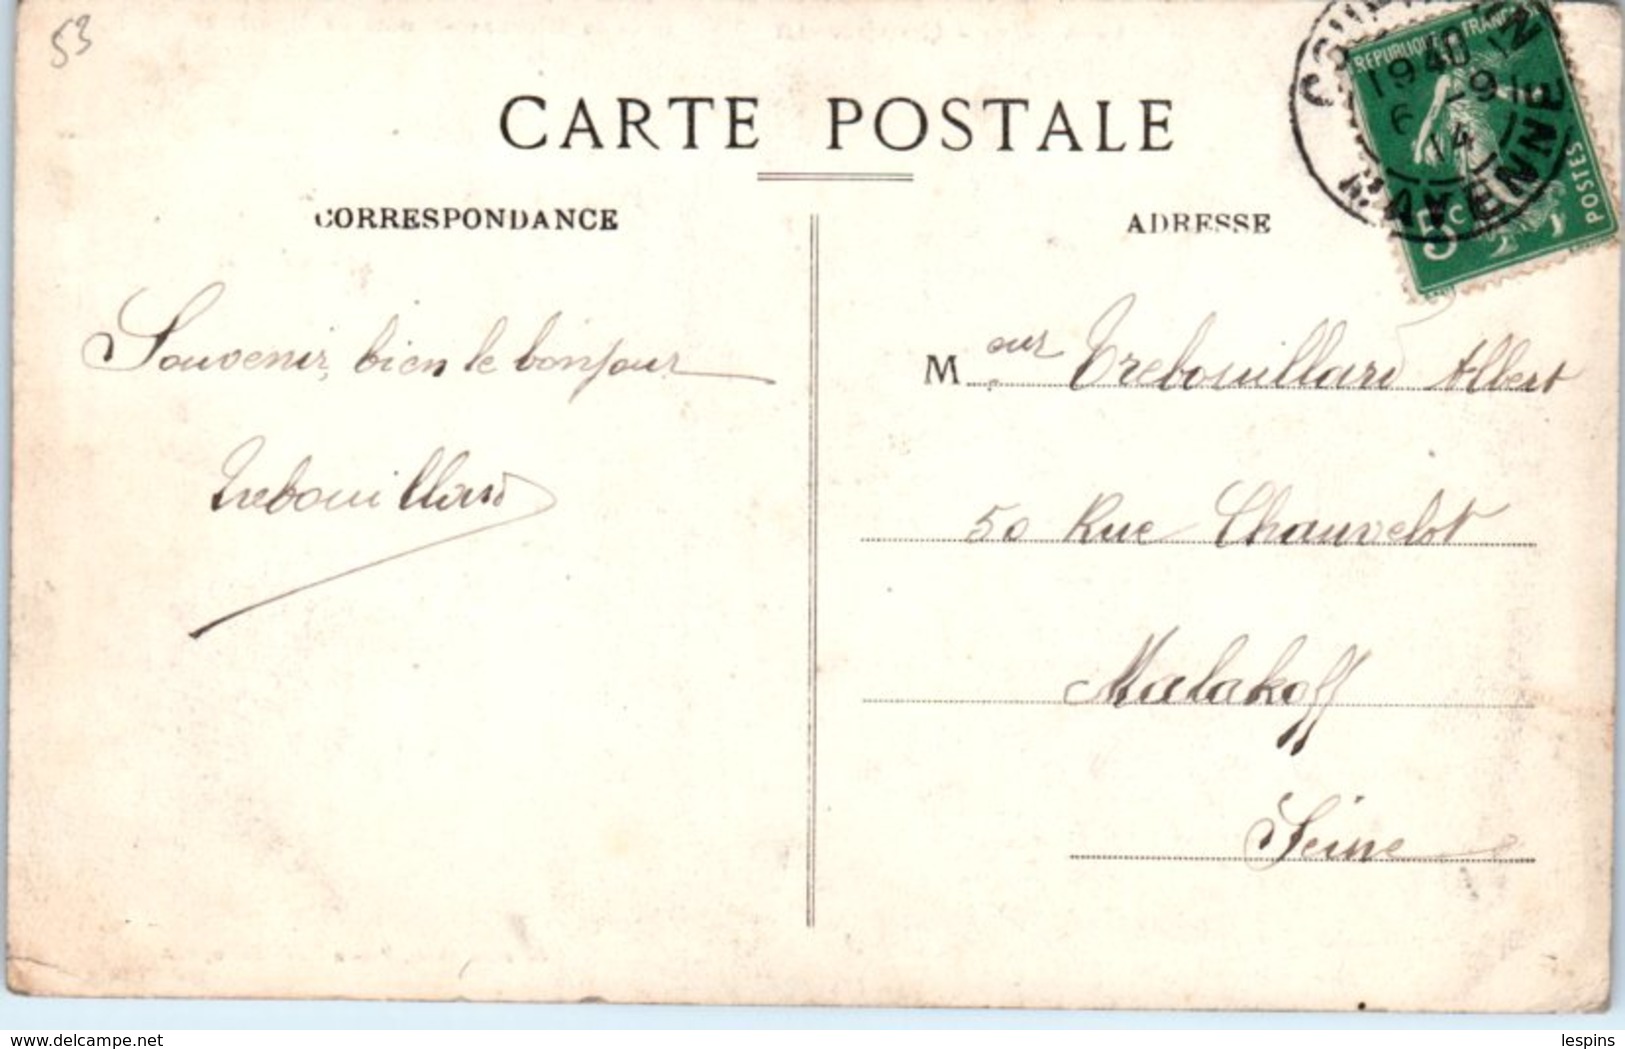 53
CARTE POSTALE
CORRESPONDANCE
ADRESSE
REPUBLIQUE FRANÇAISE
19 40
6 -9
14
MAYENNE
5c
POSTES
Souvenir, bien le bonjour
Trebouillard
Mosieur Trebouillard Albert
50 Rue Chauvelot
Malakoff
Seine
www.delcampe.net
lespins